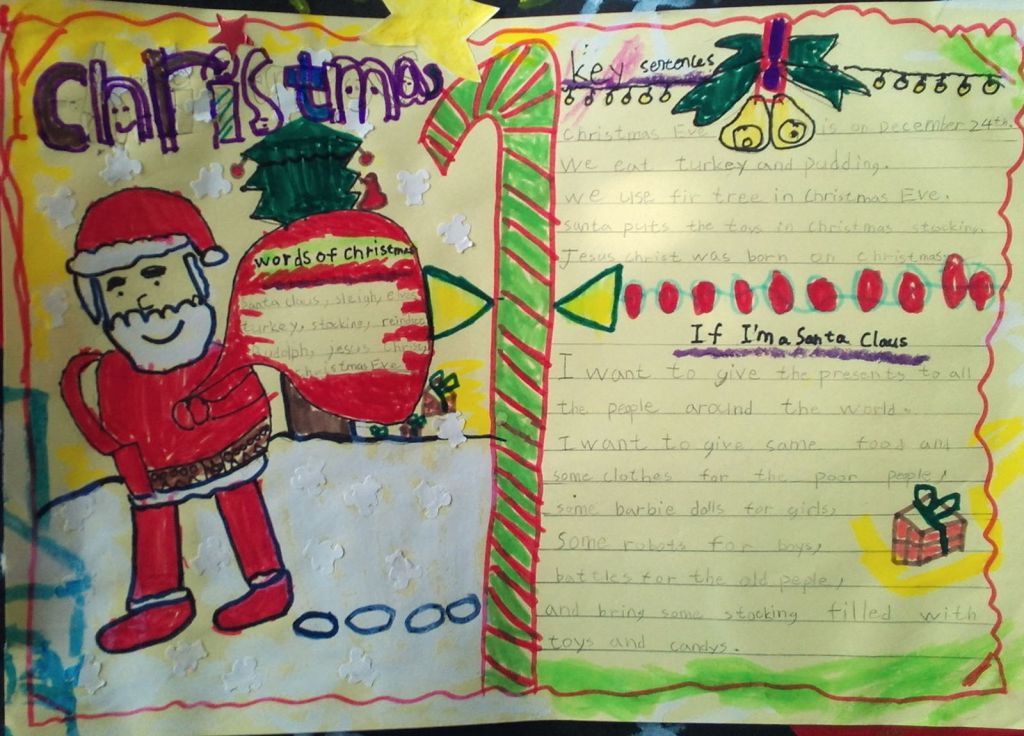 Christmas
words of Christmas
Santa claus, sleigh, elves
turkey, stocking, reindeer
Rudolph, jesus Christ,
christmas Eve
key sentences
Christmas Eve is on December 24th.
We eat turkey and pudding.
We use fir tree in Christmas Eve.
Santa puts the toys in Christmas stocking.
Jesus Christ was born on Christmas.
If I'm a Santa Claus
I want to give the presents to all
the people around the world.
I want to give some food and
some clothes for the poor people,
some barbie dolls for girls,
Some robots for boys,
battles for the old peple,
and bring some stocking filled with
toys and candys.